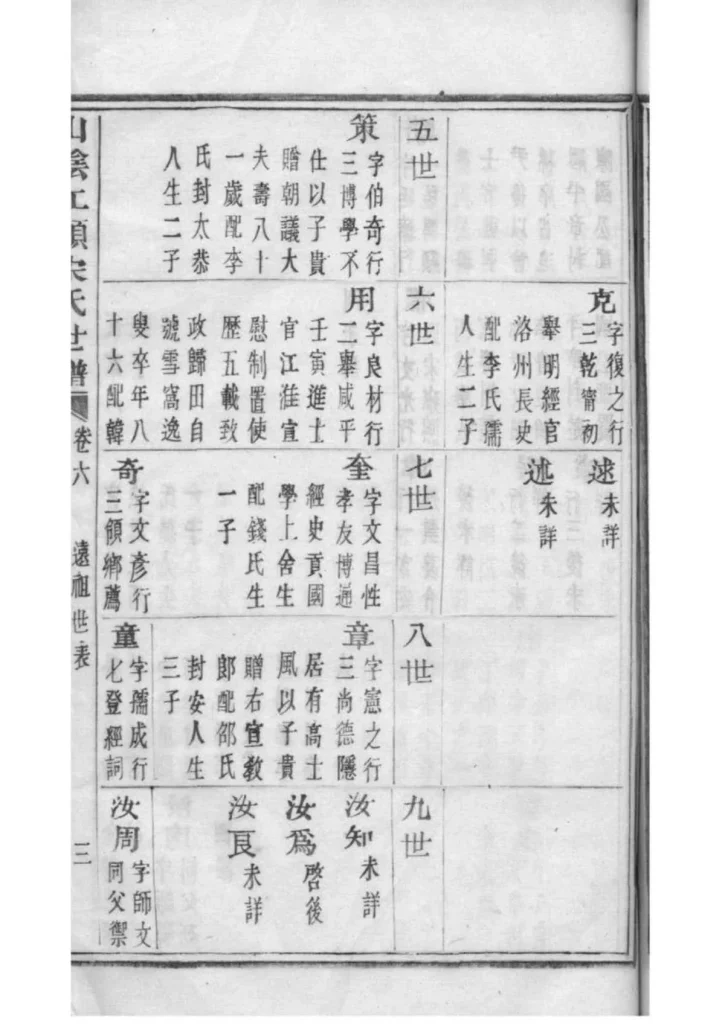 克
字復之行
三乾甯初
舉明經官
洛州長史
配李氏孺
人生二子
逑 未詳
述 未詳
五世
策
字伯奇行
三博學不
仕以子貴
贈朝議大
夫壽八十
一歲配李
氏封太恭
人生二子
六世
用
字良材行
二舉咸平
壬寅進士
官江淮宣
慰制置使
歷五載致
政歸田自
號雪窩逸
叟卒年八
十六配韓
七世
奎
字文昌性
孝友博通
經史貢國
學上舍生
配錢氏生
一子
奇
字文彥行
三領鄉薦
八世
章
字憲之行
三尚德隱
居有高士
風以子貴
贈右宣教
郎配邵氏
封安人生
三子
童
字孺成行
七登經詞
九世
汝知 未詳
汝為 啓後
汝良 未詳
汝周
字師文
同父禦
山陰江頭宋氏世譜
卷六
遠祖世表
三